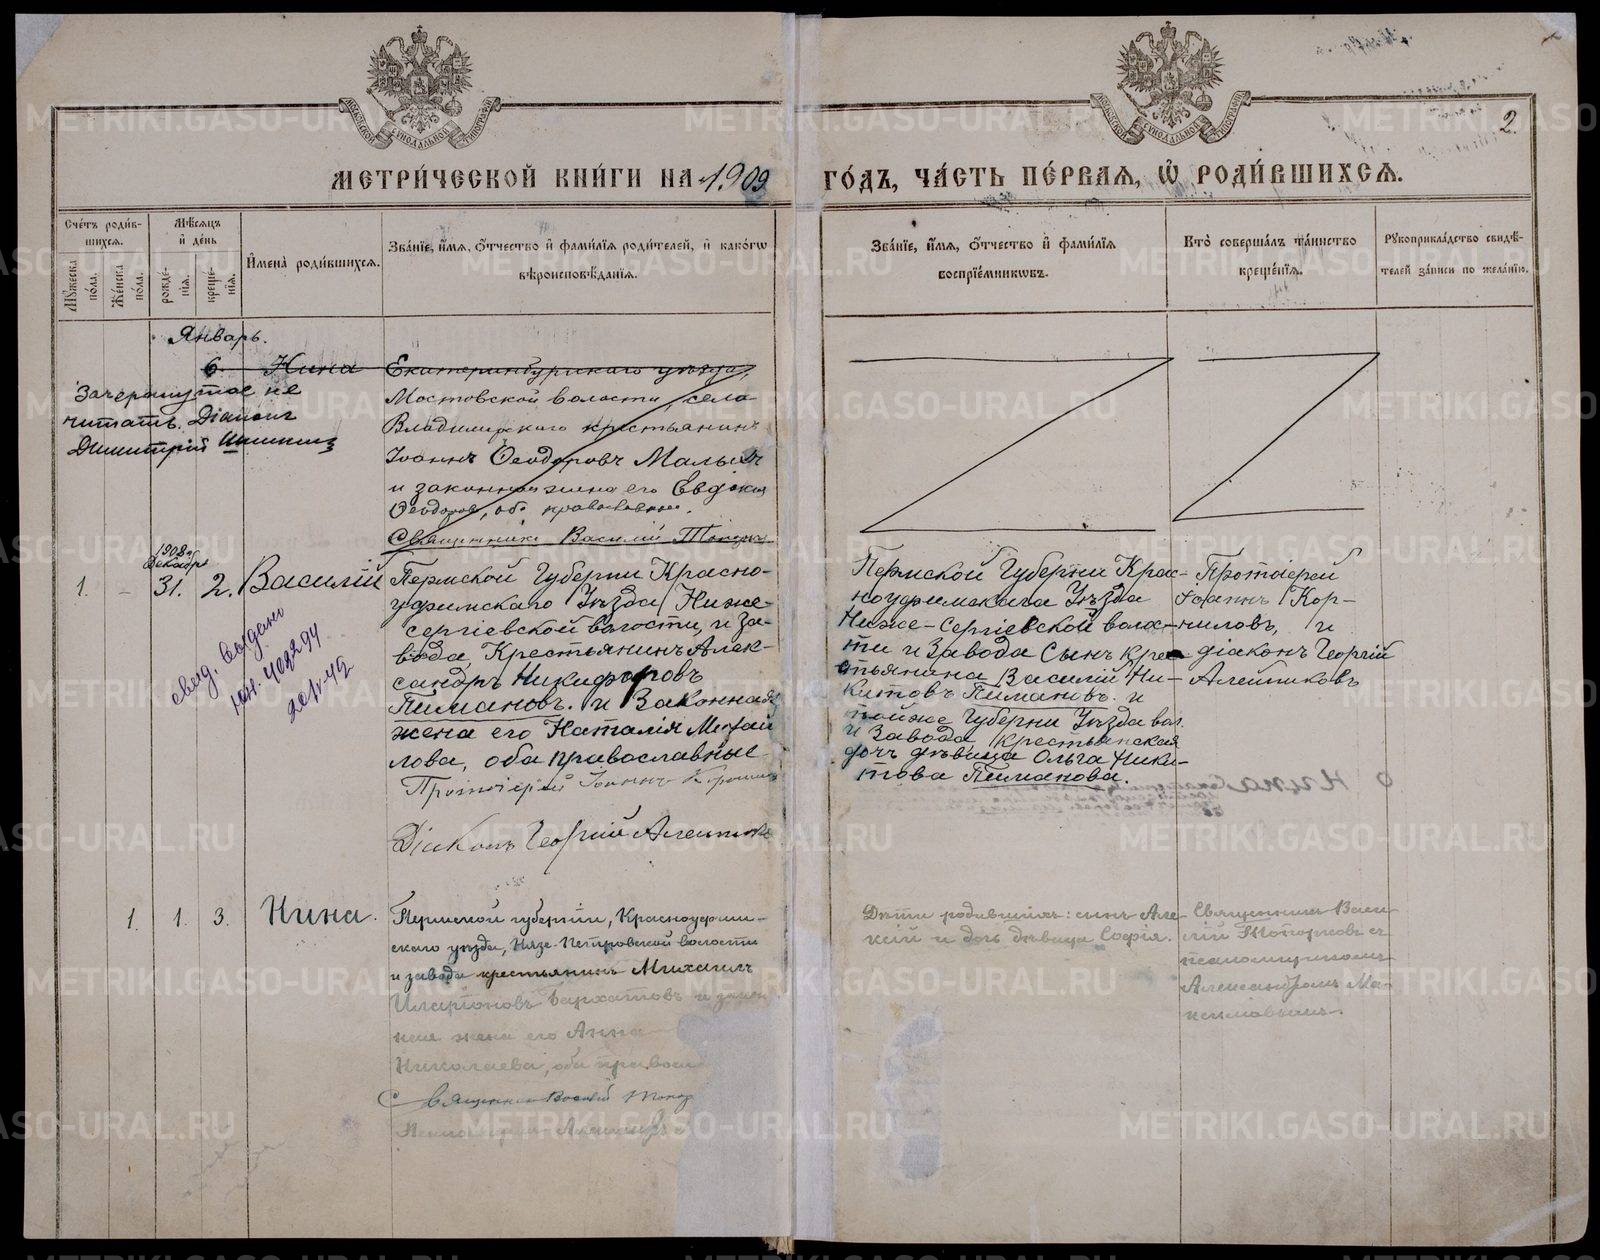 МОСКОВСКОЙ СѴНОДАЛЬНОЙ ТИПОГРАФІИ
МОСКОВСКОЙ СѴНОДАЛЬНОЙ ТИПОГРАФІИ
2
МЕТРИ́ЧЕСКОЙ КНИ́ГИ НА 1909 ГО́ДЪ, ЧА́СТЬ ПЕ́РВАЯ, Ѡ҆ РОДИ́ВШИХСЯ.
Сче́тъ роди́в-
шихся.
Му́жеска
по́ла.
Же́нска
по́ла.
Мѣ́сяцъ
и҆ де́нь
рожде́-
нїя.
креще́-
нїя.
И҆мена̀ роди́вшихся.
Зва́нїе, и҆́мя, ѻ҆́тчество и҆ фами́лїя роди́телей, и҆ како́гѡ
вѣроисповѣ́данїя.
Зва́нїе, и҆́мя, ѻ҆́тчество и҆ фами́лїя
воспрїе́мникѡвъ.
Кто̀ соверша́лъ та́инство
креще́нїя.
Рꙋкоприкла́дство свидѣ́-
телей за́писи по жела́нїю.
Январь.
6. Нина
Екатеринбургскаго уѣзда,
Мостовской волости, села
Владимірскаго крестьянинъ
Іоаннъ Ѳеодоровъ
и законная жена его Евдокія
Ѳеодорова, оба православные.
Священникъ Василій
Зачеркнутое не
читать. Діаконъ
Димитрій
1.
1908 г.
Декабрь
31. 2. Василій
Пермской Губерніи Красно-
уфимскаго Уѣзда Ниже-
сергіевской волости, и за-
вода, Крестьянинъ Алек-
сандръ Никифоровъ
Пимановъ. и Законная
жена его Наталія Михай
лова, оба православные
Протоіерей Іоаннъ Корнилов
Діаконъ Георгій
свид. выдано
Пермской Губерніи Крас-
ноуфимскаго Уѣзда
Ниже-Сергіевской волос-
ти и Завода Сынъ кре
стьянина Василій Ни-
китовъ Пимановъ. и
тойже Губерніи Уѣзда вол.
и Завода Крестьянская
дочь дѣвица Ольга Ники-
това Пиманова.
Протоіерей
Іоаннъ Кор-
ниловъ, и
діаконъ Георгій
Алейниковъ
1. 1. 3. Нина.
Пермской губерніи, Красноуфим-
скаго уѣзда, Нязе-Петровской волости
и завода крестьянинъ Михаилъ
Иларіоновъ Бархатовъ и закон
ная жена его Анна
Николаева, оба правосл
Священник Василій Топор
Дѣти родившихъ: сынъ Але-
ксій и дочь дѣвица Софія.
Священникъ Васи-
лій Топорковъ съ
псаломщикомъ
Александромъ Ма-
ксимовымъ.
METRIKI.GASO-URAL.RU